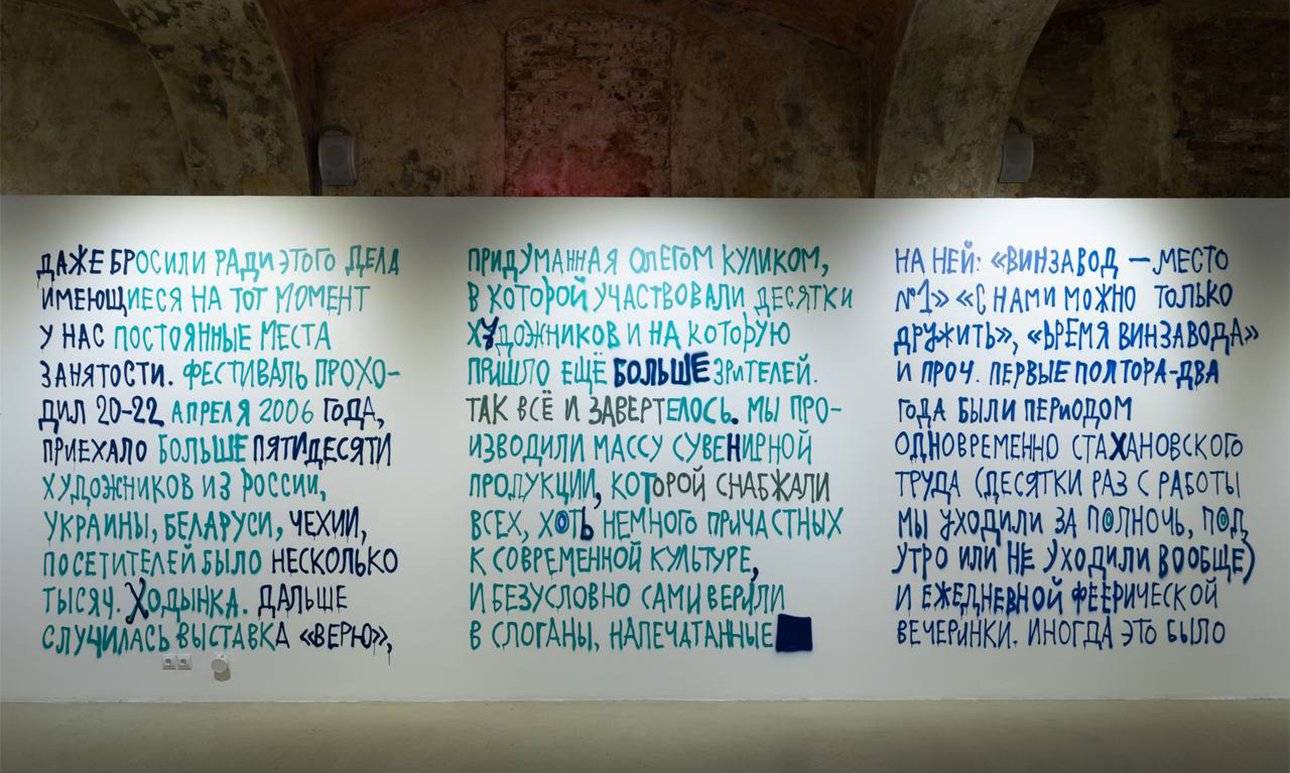 ДАЖЕ БРОСИЛИ РАДИ ЭТОГО ДЕЛА
ИМЕЮЩИЕСЯ НА ТОТ МОМЕНТ
У НАС ПОСТОЯННЫЕ МЕСТА
ЗАНЯТОСТИ. ФЕСТИВАЛЬ ПРОХО-
ДИЛ 20-22 АПРЕЛЯ 2006 ГОДА,
ПРИЕХАЛО БОЛЬШЕ ПЯТИДЕСЯТИ
ХУДОЖНИКОВ ИЗ РОССИИ,
УКРАИНЫ, БЕЛАРУСИ, ЧЕХИИ,
ПОСЕТИТЕЛЕЙ БЫЛО НЕСКОЛЬКО
ТЫСЯЧ. ХОДЫНКА. ДАЛЬШЕ
СЛУЧИЛАСЬ ВЫСТАВКА «ВЕРЮ»,
ПРИДУМАННАЯ ОЛЕГОМ КУЛИКОМ,
В КОТОРОЙ УЧАСТВОВАЛИ ДЕСЯТКИ
ХУДОЖНИКОВ И НА КОТОРУЮ
ПРИШЛО ЕЩЁ БОЛЬШЕ ЗРИТЕЛЕЙ.
ТАК ВСЁ И ЗАВЕРТЕЛОСЬ. МЫ ПРО-
ИЗВОДИЛИ МАССУ СУВЕНИРНОЙ
ПРОДУКЦИИ, КОТОРОЙ СНАБЖАЛИ
ВСЕХ, ХОТЬ НЕМНОГО ПРИЧАСТНЫХ
К СОВРЕМЕННОЙ КУЛЬТУРЕ,
И БЕЗУСЛОВНО САМИ ВЕРИЛИ
В СЛОГАНЫ, НАПЕЧАТАННЫЕ
НА НЕЙ: «ВИНЗАВОД — МЕСТО
№1» «С НАМИ МОЖНО ТОЛЬКО
ДРУЖИТЬ», «ВРЕМЯ ВИНЗАВОДА»
И ПРОЧ. ПЕРВЫЕ ПОЛТОРА-ДВА
ГОДА БЫЛИ ПЕРИОДОМ
ОДНОВРЕМЕННО СТАХАНОВСКОГО
ТРУДА (ДЕСЯТКИ РАЗ С РАБОТЫ
МЫ УХОДИЛИ ЗА ПОЛНОЧЬ, ПОД
УТРО ИЛИ НЕ УХОДИЛИ ВООБЩЕ)
И ЕЖЕДНЕВНОЙ ФЕЕРИЧЕСКОЙ
ВЕЧЕРИНКИ. ИНОГДА ЭТО БЫЛО